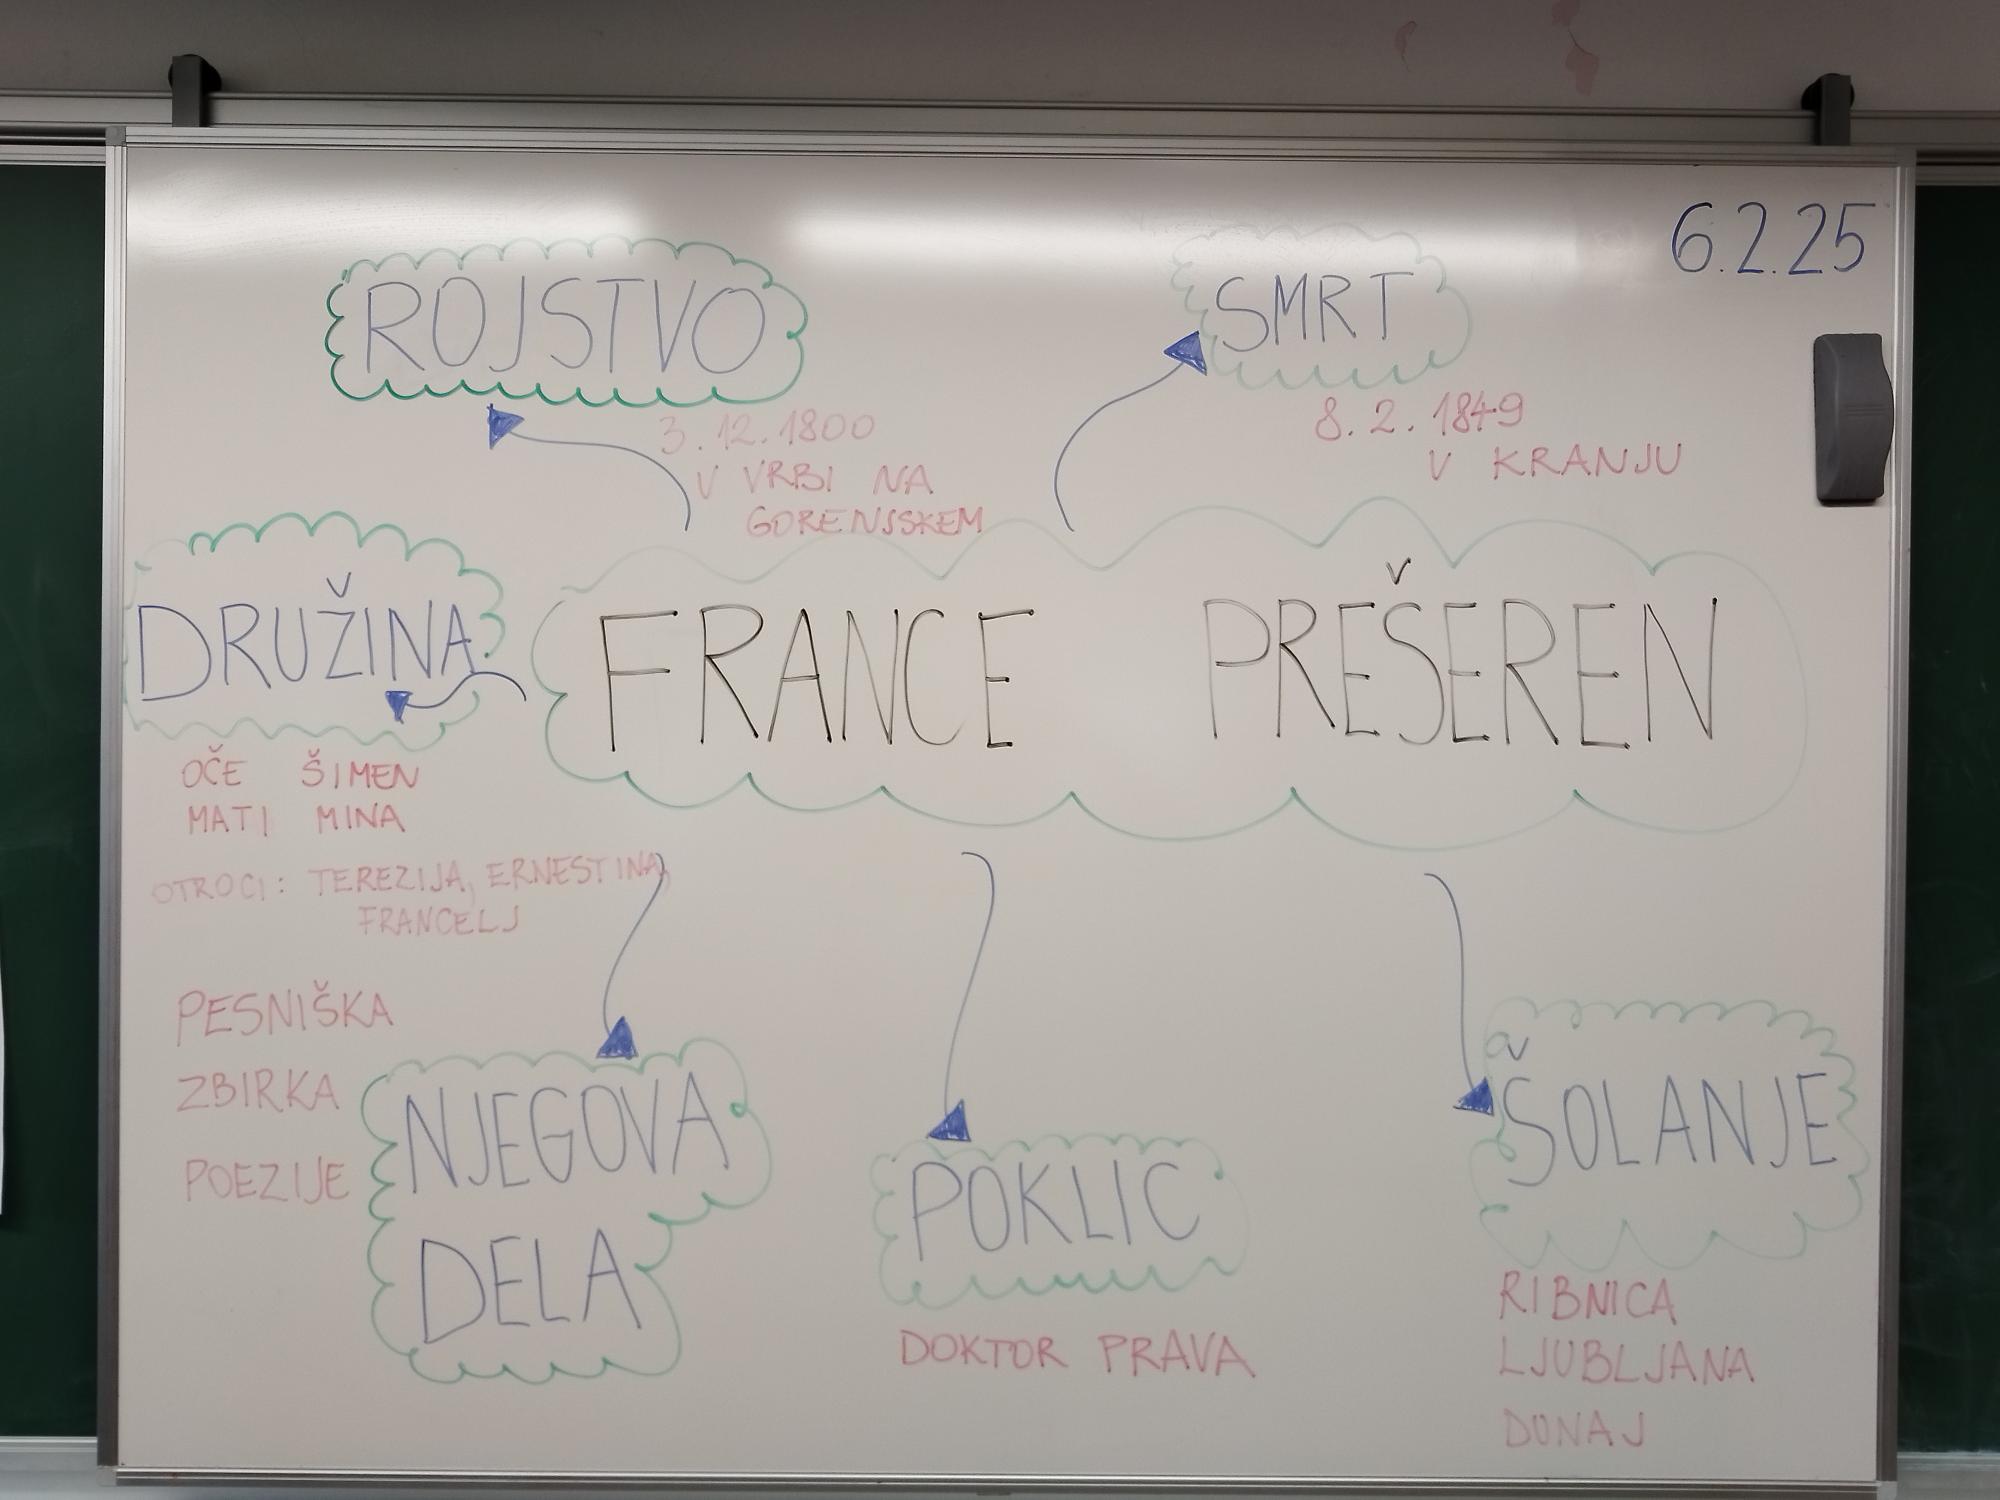 6.2.25
ROJSTVO
3.12.1800
V VRBI NA
GORENJSKEM
SMRT
8.2.1849
V KRANJU
DRUŽINA
OČE ŠIMEN
MATI MINA
OTROCI: TEREZIJA, ERNESTINA,
FRANCELJ
FRANCE PREŠEREN
PESNIŠKA
ZBIRKA
POEZIJE
NJEGOVA
DELA
POKLIC
DOKTOR PRAVA
ŠOLANJE
RIBNICA
LJUBLJANA
DUNAJ